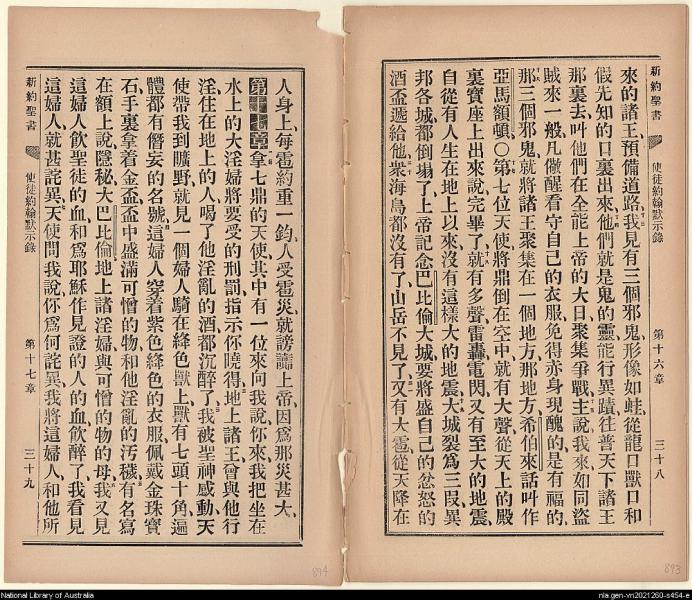 新約聖書 使徒約翰默示錄 第十六章 三十八
來的諸王預備道路、我見有三個邪鬼、形像如蛙、從龍口獸口和
假先知的口裏出來、他們就是鬼的靈、能行異蹟、往普天下諸王
那裏去、叫他們在全能上帝的大日聚集爭戰、主說、我來如同盜
賊來一般、凡儆醒看守自己的衣服、免得赤身現醜的、是有福的、
那三個邪鬼、就將諸王聚集在一個地方、那地方、希伯來話叫作
亞馬額頓、〇第七位天使將鼎倒在空中、就有大聲從天上的殿
裏寶座上出來說、完畢了、就有多聲、雷轟、電閃、又有至大的地震、
自從有人生在地上以來、沒有這樣大的地震、大城裂為三段、異
邦各城都倒塌了、上帝記念巴比倫大城、要將盛自己的忿怒的
酒盃遞給他、衆海島都沒有了、山岳不見了、又有大雹從天降在
人身上、每雹約重一鈞、人受雹災、就謗讟上帝、因為那災甚大、
第十七章 拿七鼎的天使、其中有一位來向我說、你來、我把坐在
水上的大淫婦將要受的刑罰、指示你曉得、地上諸王曾與他行
淫、住在地上的人、喝了他淫亂的酒、都沉醉了、我被聖神感動、天
使帶我到曠野、就見一個婦人、騎在絳色獸上、獸有七頭十角、遍
體都有僭妄的名號、這婦人穿着紫色絳色的衣服、佩戴金珠寶
石、手裏拿着金盃、盃中盛滿可憎的物和他淫亂的汚穢、有名寫
在額上說、隱秘大巴比倫、地上諸淫婦與可憎的物的母、我又見
這婦人飲聖徒的血、和為耶穌作見證的人的血、飲醉了、我看見
這婦人、就甚詫異、天使問我說、你為何詫異、我將這婦人、和他所
新約聖書 使徒約翰默示錄 第十七章 三十九
894
893
National Library of Australia
nla.gen-vn2021260-s454-e